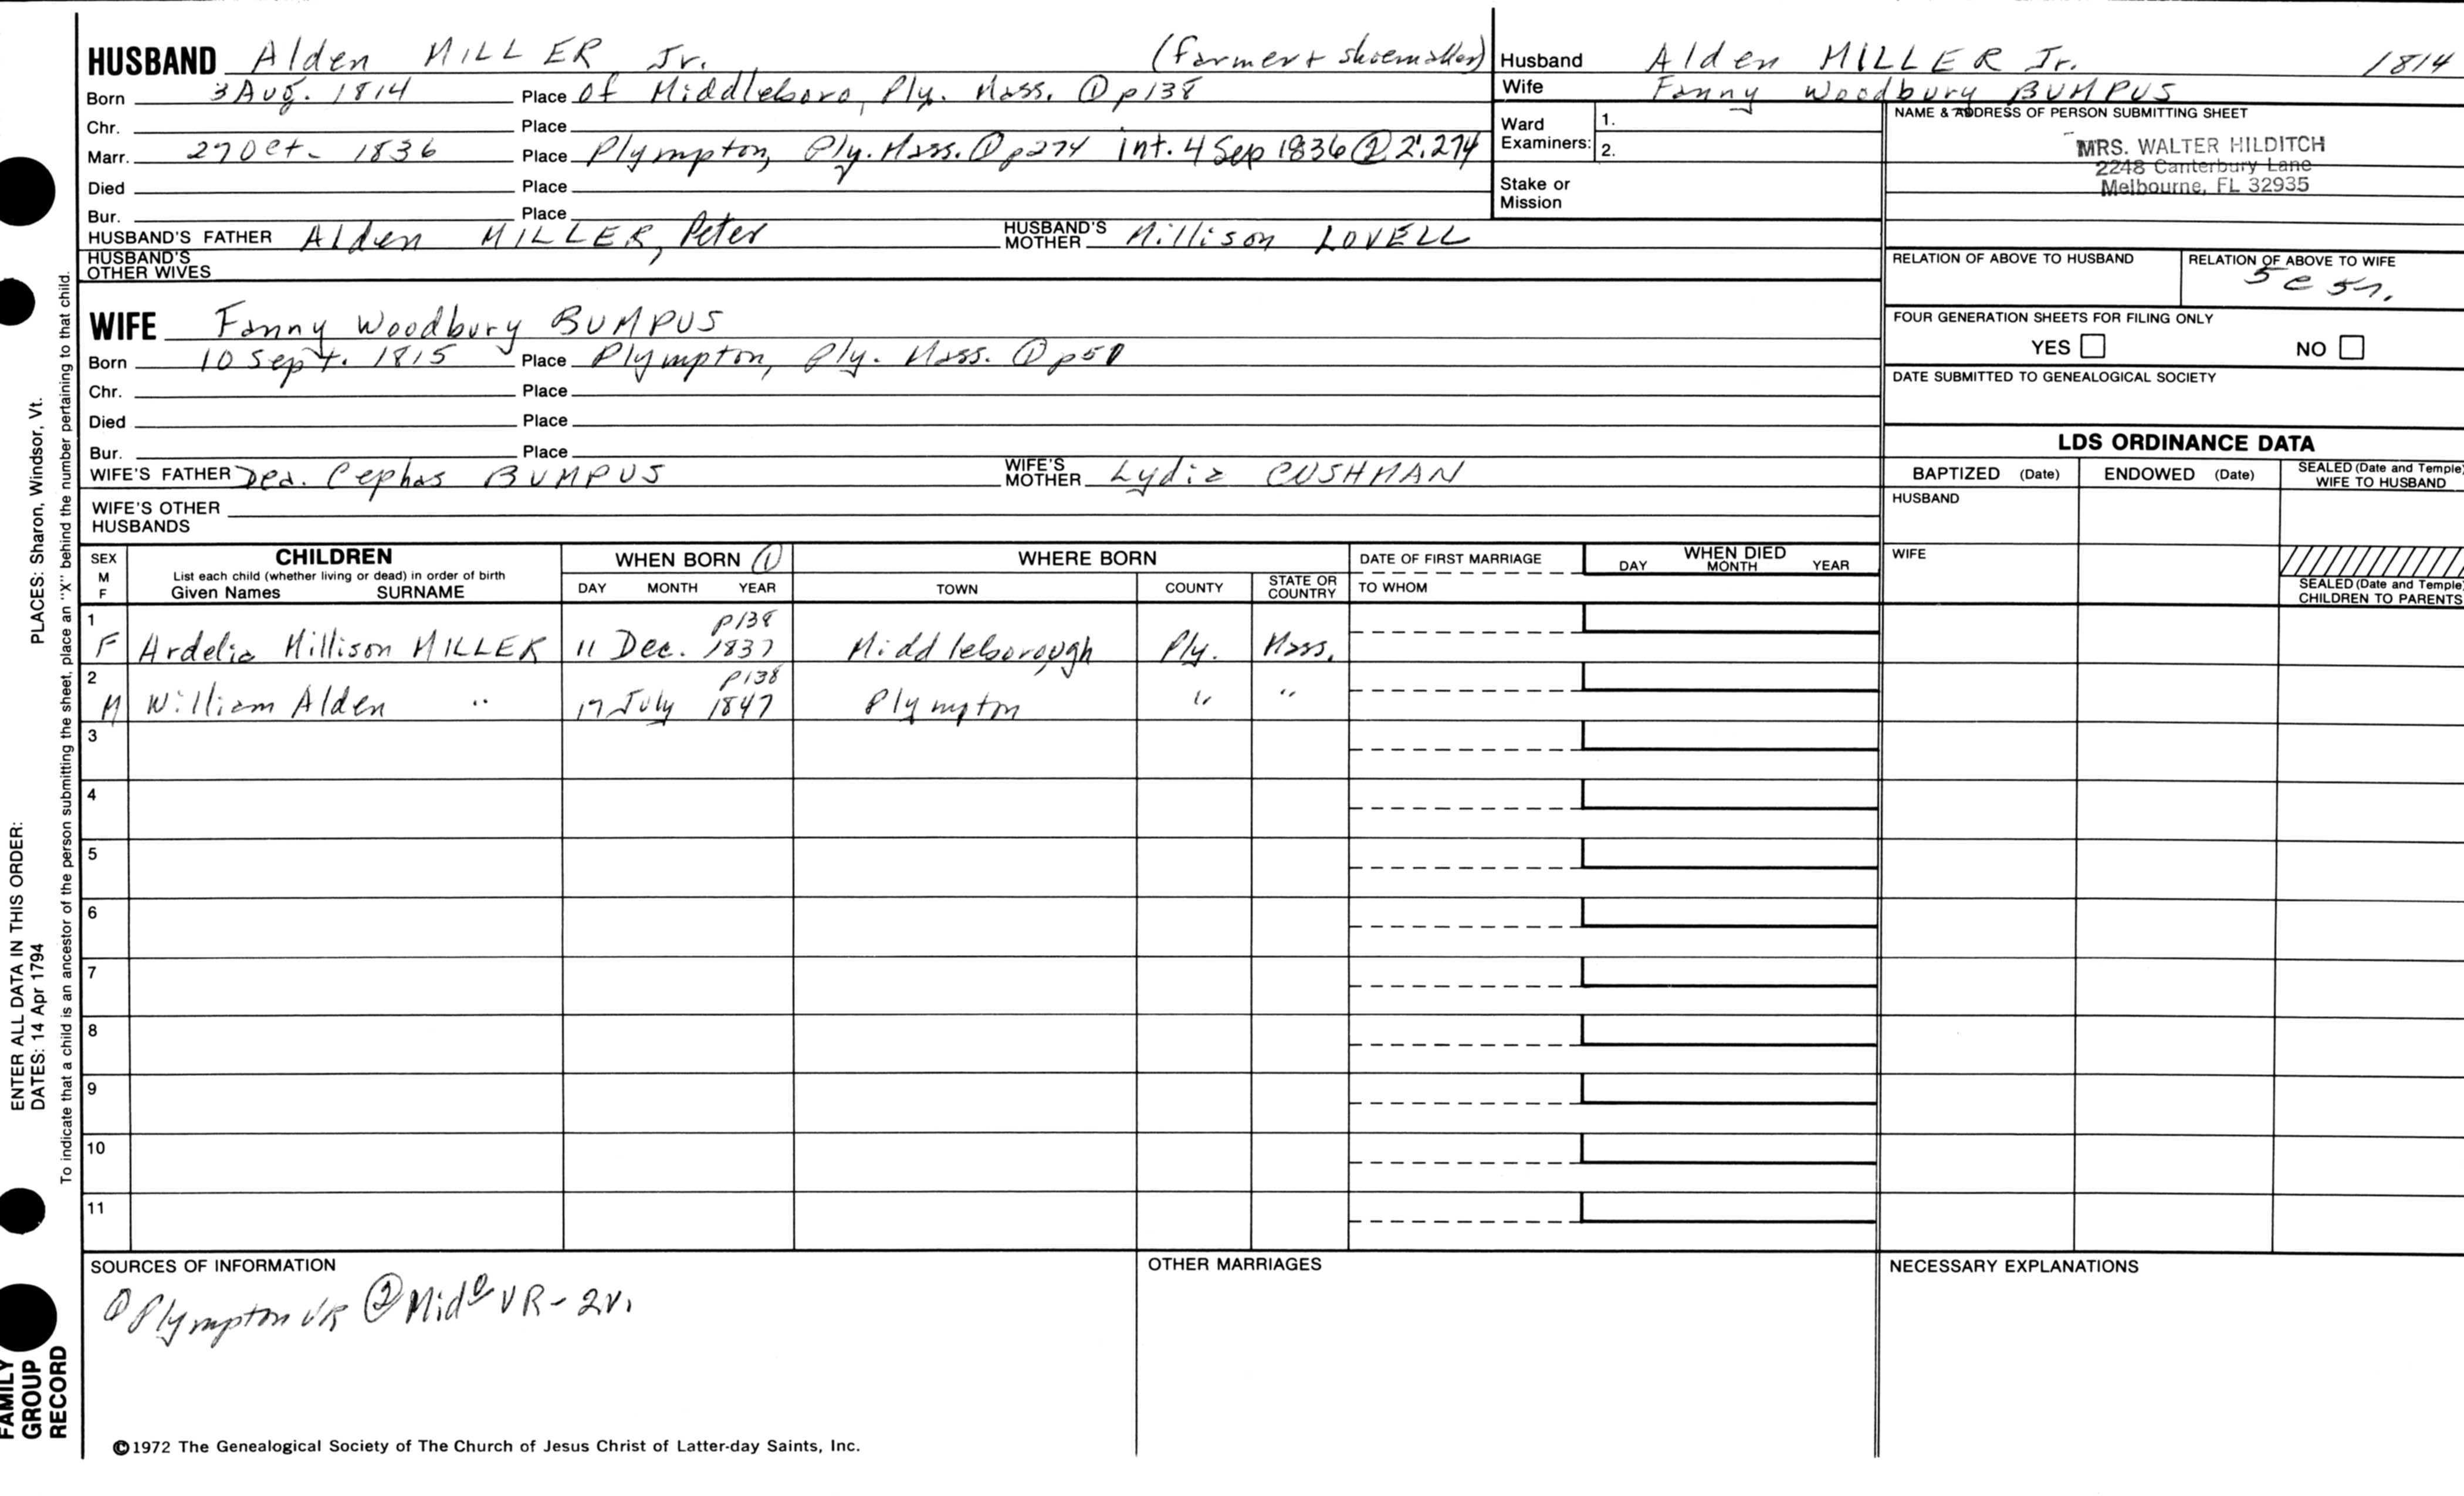 HUSBAND Alden MILLER Jr. (farmer + shoemaker)
Born 3 Aug. 1814 Place of Middleboro, Ply. Mass. ① p138
Chr. Place
Marr. 27 Oct. 1836 Place Plympton, Ply. Mass. ① p274 int. 4 Sep 1836 ② 2:274
Died Place
Bur. Place
HUSBAND'S FATHER Alden MILLER, Peter HUSBAND'S MOTHER Millison LOVELL
HUSBAND'S OTHER WIVES
WIFE Fanny Woodbury BUMPUS
Born 10 Sept. 1815 Place Plympton, Ply. Mass. ① p50
Chr. Place
Died Place
Bur. Place
WIFE'S FATHER Dea. Cephas BUMPUS WIFE'S MOTHER Lydia CUSHMAN
WIFE'S OTHER HUSBANDS
Husband Alden MILLER Jr. 1814
Wife Fanny Woodbury BUMPUS
Ward Examiners: 1.
2.
Stake or Mission
NAME & ADDRESS OF PERSON SUBMITTING SHEET
MRS. WALTER HILDITCH
2248 Canterbury Lane
Melbourne, FL 32935
RELATION OF ABOVE TO HUSBAND RELATION OF ABOVE TO WIFE
5 c 5r.
FOUR GENERATION SHEETS FOR FILING ONLY
YES NO
DATE SUBMITTED TO GENEALOGICAL SOCIETY
LDS ORDINANCE DATA
BAPTIZED (Date) ENDOWED (Date) SEALED (Date and Temple) WIFE TO HUSBAND
HUSBAND
WIFE
SEALED (Date and Temple) CHILDREN TO PARENTS
SEX M F
CHILDREN
List each child (whether living or dead) in order of birth
Given Names SURNAME
WHEN BORN ①
DAY MONTH YEAR
WHERE BORN
TOWN COUNTY STATE OR COUNTRY
DATE OF FIRST MARRIAGE
TO WHOM
WHEN DIED
DAY MONTH YEAR
1 p138
F Ardelia Millison MILLER 11 Dec. 1837 Middleborough Ply. Mass.
2 p138
M William Alden " 17 July 1847 Plympton " "
3
4
5
6
7
8
9
10
11
SOURCES OF INFORMATION
① Plympton VR ② Mid° VR - 2v.
OTHER MARRIAGES
NECESSARY EXPLANATIONS
©1972 The Genealogical Society of The Church of Jesus Christ of Latter-day Saints, Inc.
ENTER ALL DATA IN THIS ORDER:
DATES: 14 Apr 1794 PLACES: Sharon, Windsor, Vt.
To indicate that a child is an ancestor of the person submitting the sheet, place an "X" behind the number pertaining to that child.
FAMILY
GROUP
RECORD